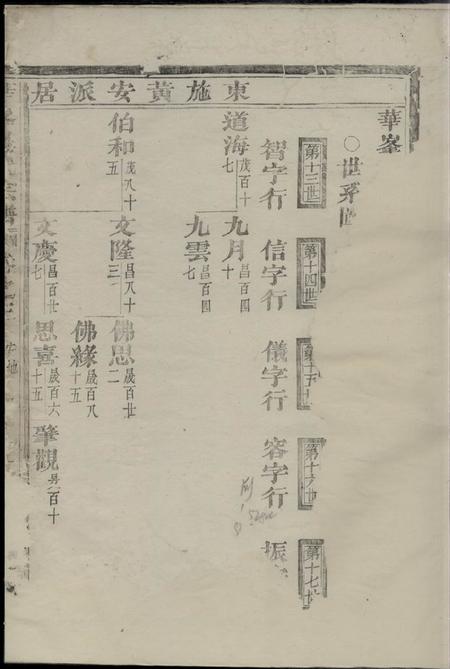 東施黃安派居
華峯
○世系圖
第十三世
第十四世
第十五世
第十六世
第十七世
智字行
信字行
儀字行
容字行
振
道海 茂百十七
九月 昌百四十
九雲 昌百四七
伯和 茂八十五
文隆 昌八十三
佛思 晟百廿二
佛緣 晟百八十五
文慶 昌百廿七
思喜 晟百六十五
肇觀 昇一百十